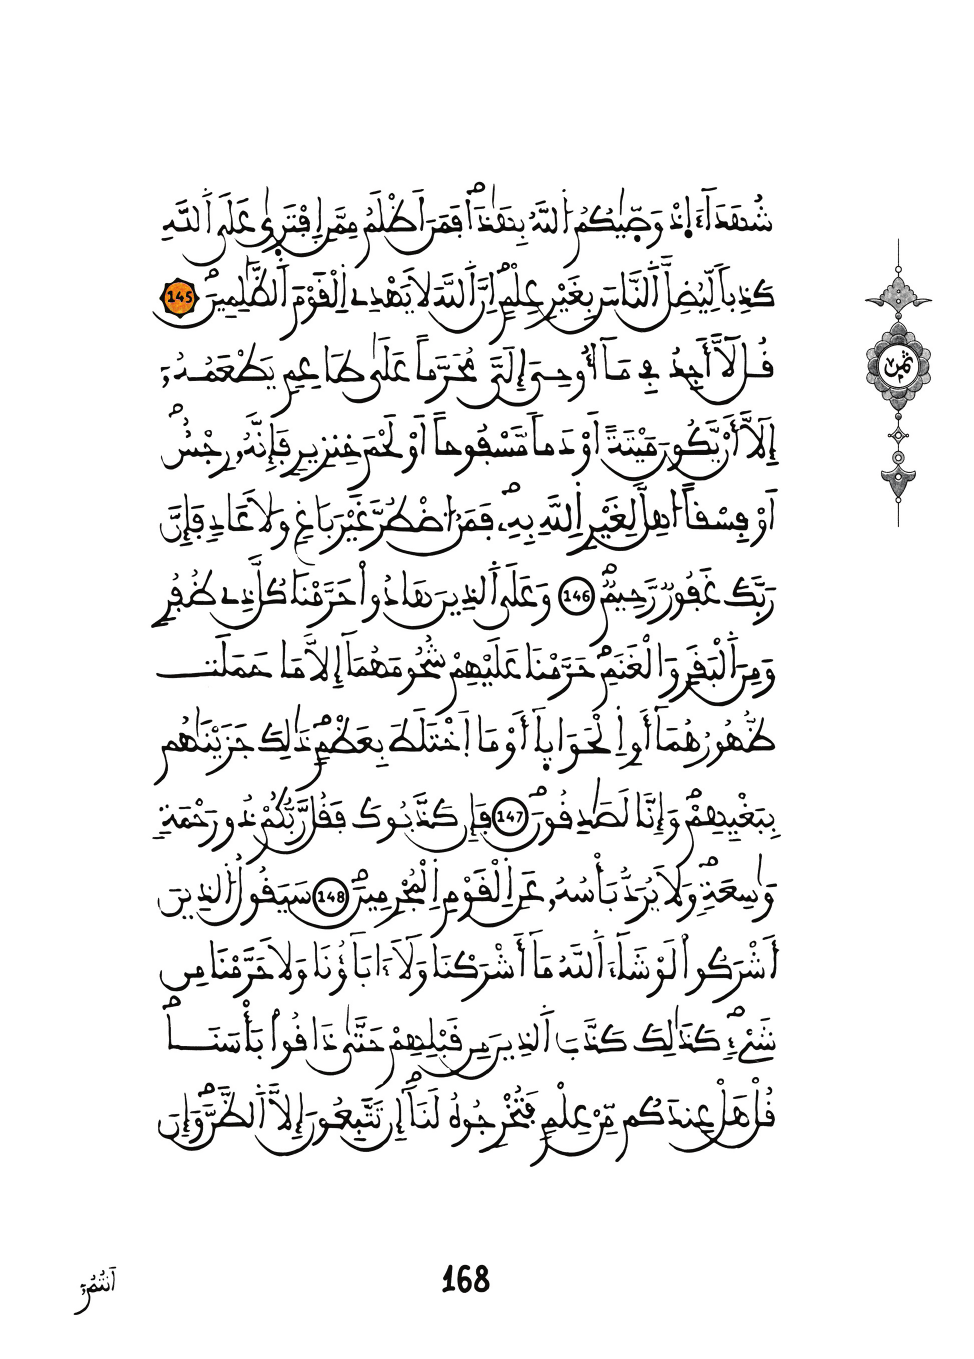 شُهَدَآءَ اِذْ وَصّٰيكُمُ اُللَّهُ بِهَٰذَاۖ فَمَنَ اَظْلَمُ مِمَّنِ اِفْتَر۪يٰ عَلَي اَللَّهِ
كَذِباٗ لِّيُضِلَّ اَلنَّاسَ بِغَيْرِ عِلْمٍۖ اِنَّ اَللَّهَ لَا يَهْدِے اِلْقَوْمَ اَلظَّٰلِمِينَۖ 145
قُل لَّآ أَجِدُ فِے مَآ أُوحِيَ إِلَيَّ مُحَرَّماً عَلَىٰ طَاعِمٖ يَطْعَمُهُۥٓ
إِلَّآ أَنْ يَّكُونَ مَيْتَةً اَوْ دَماٗ مَّسْفُوحاً اَوْ لَحْمَ خِنزِيرٖ فَإِنَّهُۥ رِجْسٌ
اَوْ فِسْقاً اُهِلَّ لِغَيْرِ اِللَّهِ بِهِۦۖ فَمَنُ اُضْطُرَّ غَيْرَ بَاغٖ وَلَا عَادٖ فَإِنَّ
رَبَّكَ غَفُورٞ رَّحِيمٞۖ 146 وَعَلَي اَلذِينَ هَادُواْ حَرَّمْنَا كُلَّ ذِے ظُفُرٖ
وَمِنَ اَلْبَقَرِ وَالْغَنَمِۖ حَرَّمْنَا عَلَيْهِمْ شُحُومَهُمَآ إِلَّا مَا حَمَلَت
ظُّهُورُهُمَآ أَوِ اِلْحَوَايَآ أَوْ مَا اَخْتَلَطَ بِعَظْمٖۖ ذَٰلِكَ جَزَيْنَٰهُم
بِبَغْيِهِمْۖ وَإِنَّا لَصَٰدِقُونَۖ 147 فَإِن كَذَّبُوكَ فَقُل رَّبُّكُمْ ذُو رَحْمَةٖ
وَٰسِعَةٖۖ وَلَا يُرَدُّ بَأْسُهُۥ عَنِ اِلْقَوْمِ اِلْمُجْرِمِينَۖ 148 سَيَقُولُ اُلذِينَ
أَشْرَكُواْ لَوْ شَآءَ اَللَّهُ مَآ أَشْرَكْنَا وَلَآ ءَابَآؤُنَا وَلَا حَرَّمْنَا مِن
شَےْءٖۖ كَذَٰلِكَ كَذَّبَ اَلذِينَ مِن قَبْلِهِمْ حَتَّىٰ ذَاقُواْ بَأْسَنَاۖ
قُلْ هَلْ عِندَكُم مِّنْ عِلْمٖ فَتُخْرِجُوهُ لَنَآۖ إِن تَتَّبِعُونَ إِلَّا اَلظَّنَّۖ وَإِنَ
اَنتُمُۥٓ
ثمن
168